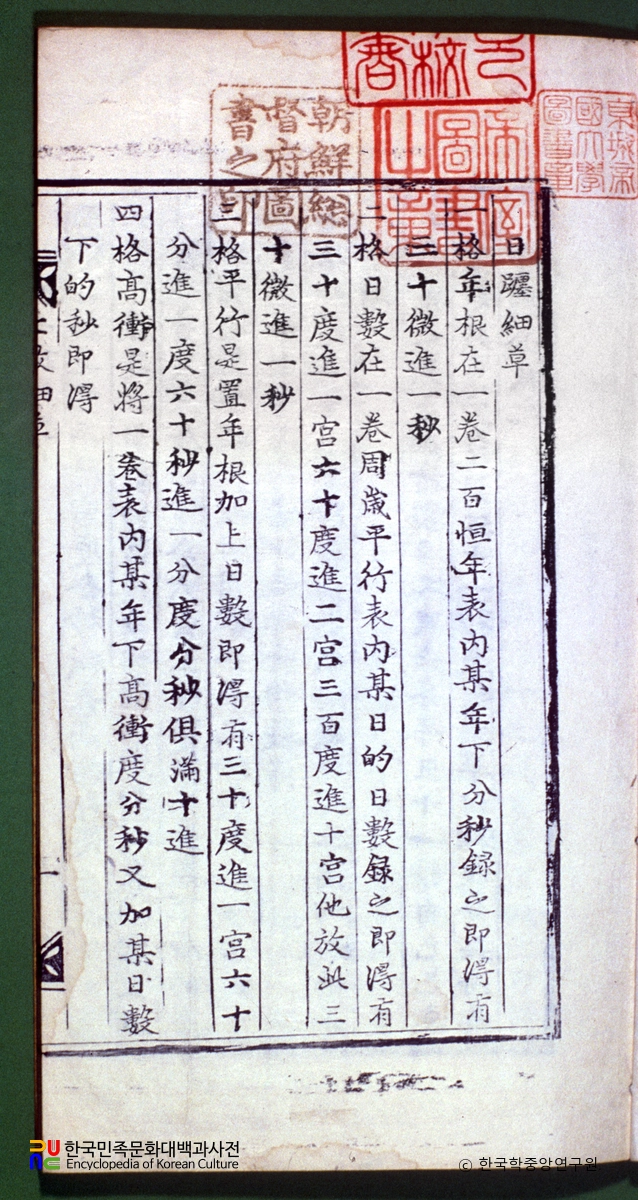 帝室
圖書
之章
朝鮮總
督府圖
書之印
日躔細草
一格年根在一卷二百恒年表内某年下分秒録之即淂有
三十微進一秒
二格日數在一卷周歲平行表内某日的日數録之即淂有
三十度進一宮六十度進二宮三百度進十宮他放此三
十微進一秒
三格平行是置年根加上日數即淂有三十度進一宮六十
分進一度六十秒進一分度分秒俱滿十進
四格髙衝是將一卷表内某年下髙衝度分秒又加某日數
下的秒即淂
細草
一
한국민족문화대백과사전
Encyclopedia of Korean Culture
ⓒ 한국학중앙연구원